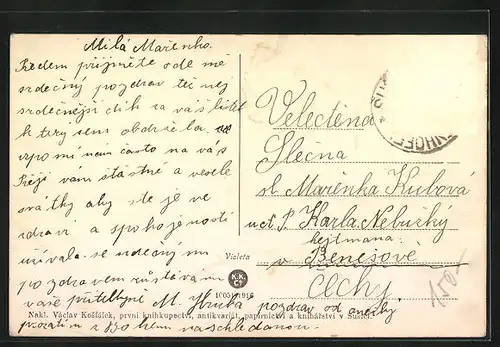 Milá Mařenko.
Předem přijměte ode mě
srdečný pozdrav tež nej
srdečnější dik za váš lístek
k terý jsem obdržela
vzpomínám často na vás
Přeji vám štástné a veselé
svátky aby ste je ve
zdraví a spokojenosti
užívala se srdečným
pozdravem zůstávám
vaše přítelkyně M. Hrubá pozdrav od
prozatím z Bohem nashledanou.
Velectěná
Slečna
sl. Mařenka Kubová
u ct. p. Karla Nebuský
hejtmana:
v Benešově
Čechy
Violeta
K.K.
1916
Nakl. Václav Košťálek, první knihkupectví, antikvariát, papírnictví a knihařství v Sušici.